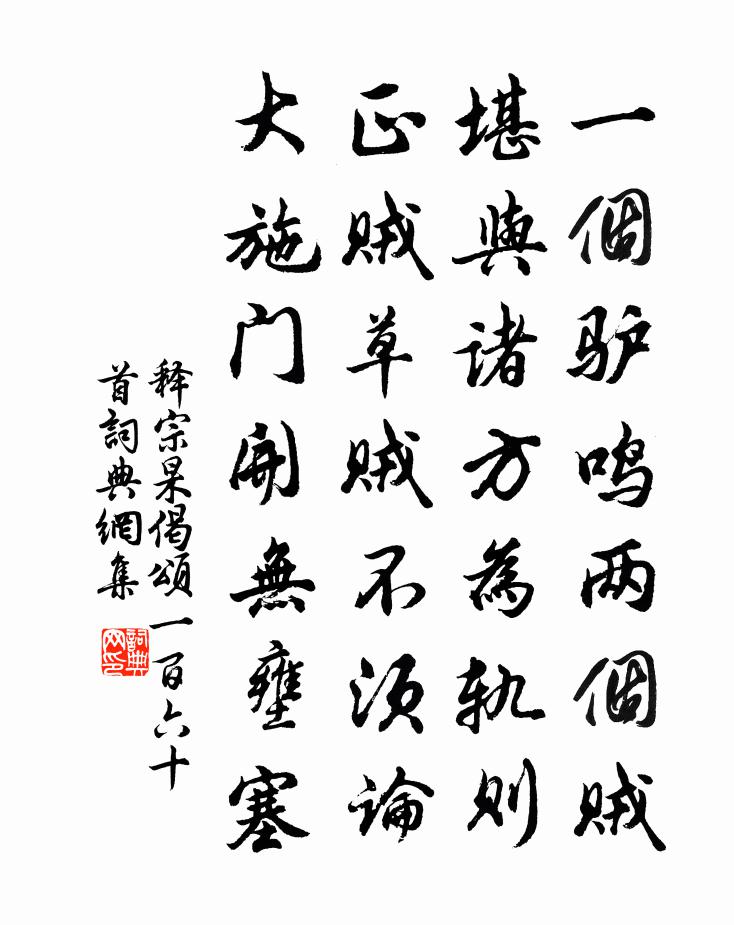 一個驴鸣两個贼
堪與诸方為轨则
正贼草贼不须論
大施门開無壅塞
释宗杲偈颂一百六十
首詞典網集
詞典网印